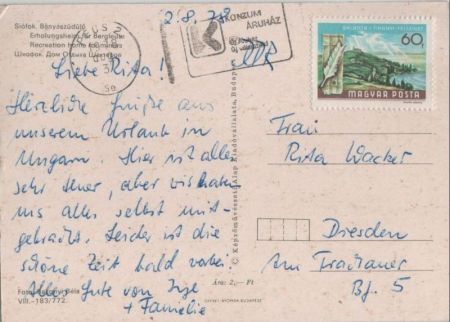 Siófok. Bányászüdülő
Erholungsheim für Bergleute
Recreation home for miners
Шиофок. Дом Отдыха Шахтеров
2.8.78
KONZUM
ÁRUHÁZ
BALATON • TIHANYI-FÉLSZIGET
60f
MAGYAR POSTA
Liebe Rita!
Herzliche Grüße aus
unserem Urlaub in
Ungarn. Hier ist alles
sehr teuer, aber wir haben
uns alles selbst mit
gebracht. Leider ist die
schöne Zeit bald vorbei.
Alles Gute von Inge
+ Familie
Foto: Béla
VIII.-183/772.
© Képzőművészeti Alap Kiadóvállalata, Budapest
Ára: 2,– Ft
Frau
Rita Wacker
Dresden
Am Trachauer
Bf. 5